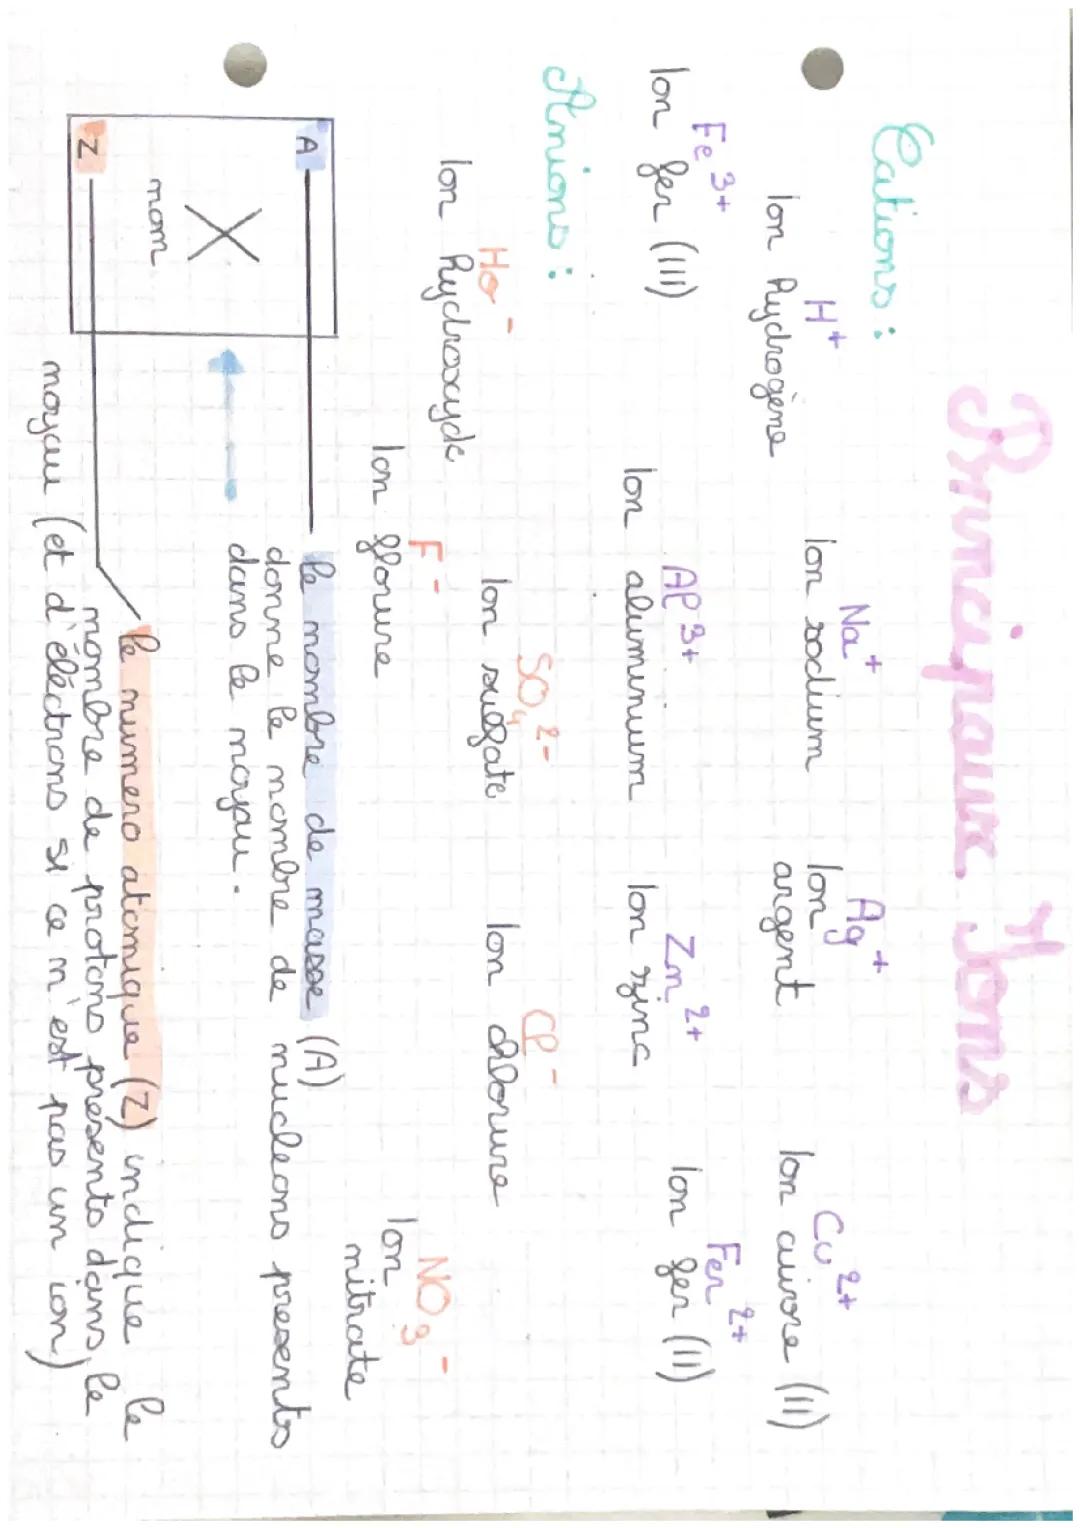 Principaux Ions
Cations :
H+ Na+ Ag+ Cu2+
Ion hydrogène Ion sodium Ion argent Ion cuivre (II)
Fe3+ Al3+ Zn2+ Fer2+
Ion fer (III) Ion aluminium Ion zinc Ion fer (II)
Anions :
HO- SO4 2- Cl- NO3-
Ion hydroxyde Ion sulfate Ion chlorure Ion nitrate
F-
Ion florure
A
X
nom
Z
le nombre de masse (A)
donne le nombre de nucleons presents
dans le noyau.
le numero atomique (Z) indique le
nombre de protons presents dans le
noyau (et d'éléctrons si ce n'est pas un ion)